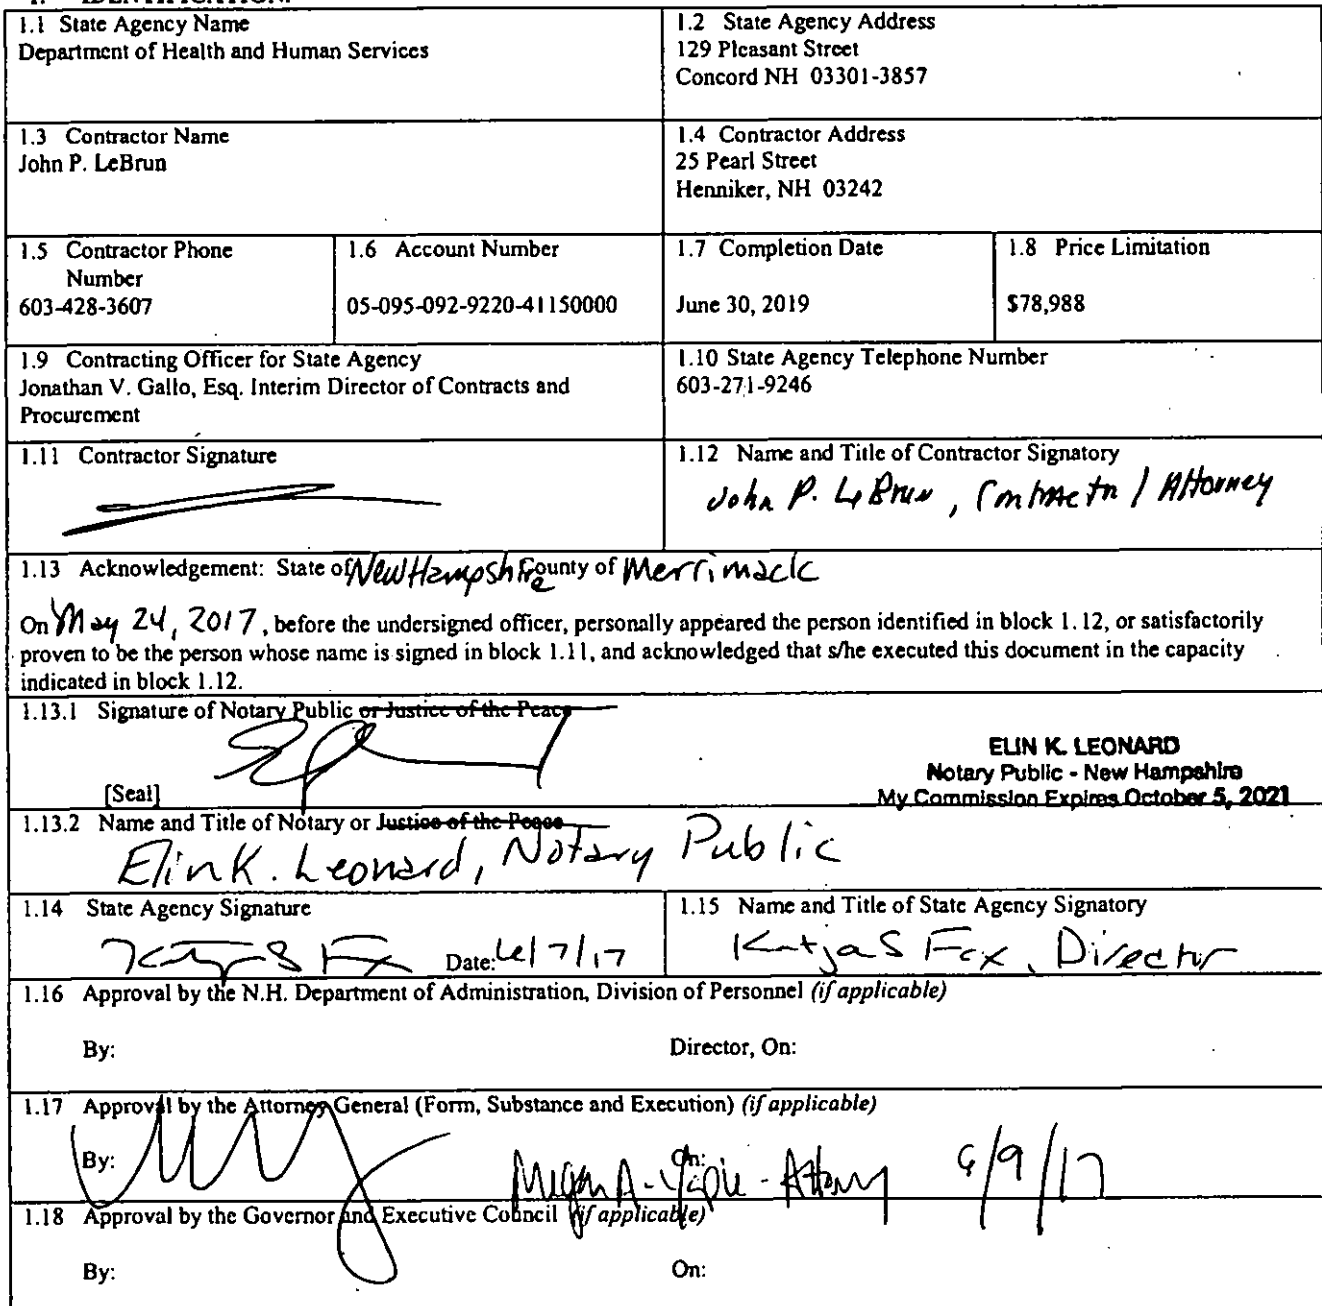 1. IDENTIFICATION.
1.1 State Agency Name
Department of Health and Human Services
1.2 State Agency Address
129 Pleasant Street
Concord NH 03301-3857
1.3 Contractor Name
John P. LeBrun
1.4 Contractor Address
25 Pearl Street
Henniker, NH 03242
1.5 Contractor Phone
Number
603-428-3607
1.6 Account Number
05-095-092-9220-41150000
1.7 Completion Date
June 30, 2019
1.8 Price Limitation
$78,988
1.9 Contracting Officer for State Agency
Jonathan V. Gallo, Esq. Interim Director of Contracts and
Procurement
1.10 State Agency Telephone Number
603-271-9246
1.11 Contractor Signature
1.12 Name and Title of Contractor Signatory
John P. LeBrun, Contractor / Attorney
1.13 Acknowledgement: State of New Hampshire County of Merrimack
On May 24, 2017, before the undersigned officer, personally appeared the person identified in block 1.12, or satisfactorily
proven to be the person whose name is signed in block 1.11, and acknowledged that s/he executed this document in the capacity
indicated in block 1.12.
1.13.1 Signature of Notary Public or Justice of the Peace
[Seal]
ELIN K. LEONARD
Notary Public - New Hampshire
My Commission Expires October 5, 2021
1.13.2 Name and Title of Notary or Justice of the Peace
Elin K. Leonard, Notary Public
1.14 State Agency Signature
Date: 6/7/17
1.15 Name and Title of State Agency Signatory
Katja S Fox, Director
1.16 Approval by the N.H. Department of Administration, Division of Personnel (if applicable)
By:
Director, On:
1.17 Approval by the Attorney General (Form, Substance and Execution) (if applicable)
By:
On:
Megan A. - Attorney 6/9/17
1.18 Approval by the Governor and Executive Council (if applicable)
By:
On: